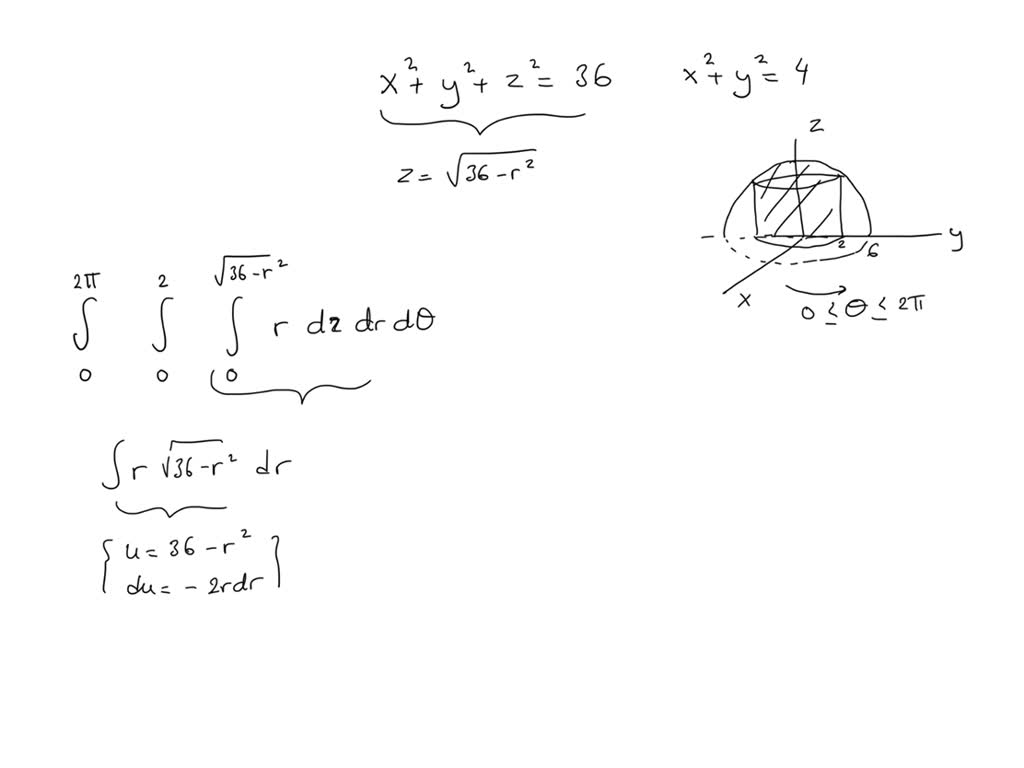 x² + y² + z² = 36    x² + y² = 4
z = √(36 - r²)
z
y
2
6
x
0 ≤ θ ≤ 2π
∫₀^{2π} ∫₀^{2} ∫₀^{√36-r²} r dz dr dθ
∫ r √36-r² dr
{ u = 36 - r² }
du = - 2rdr